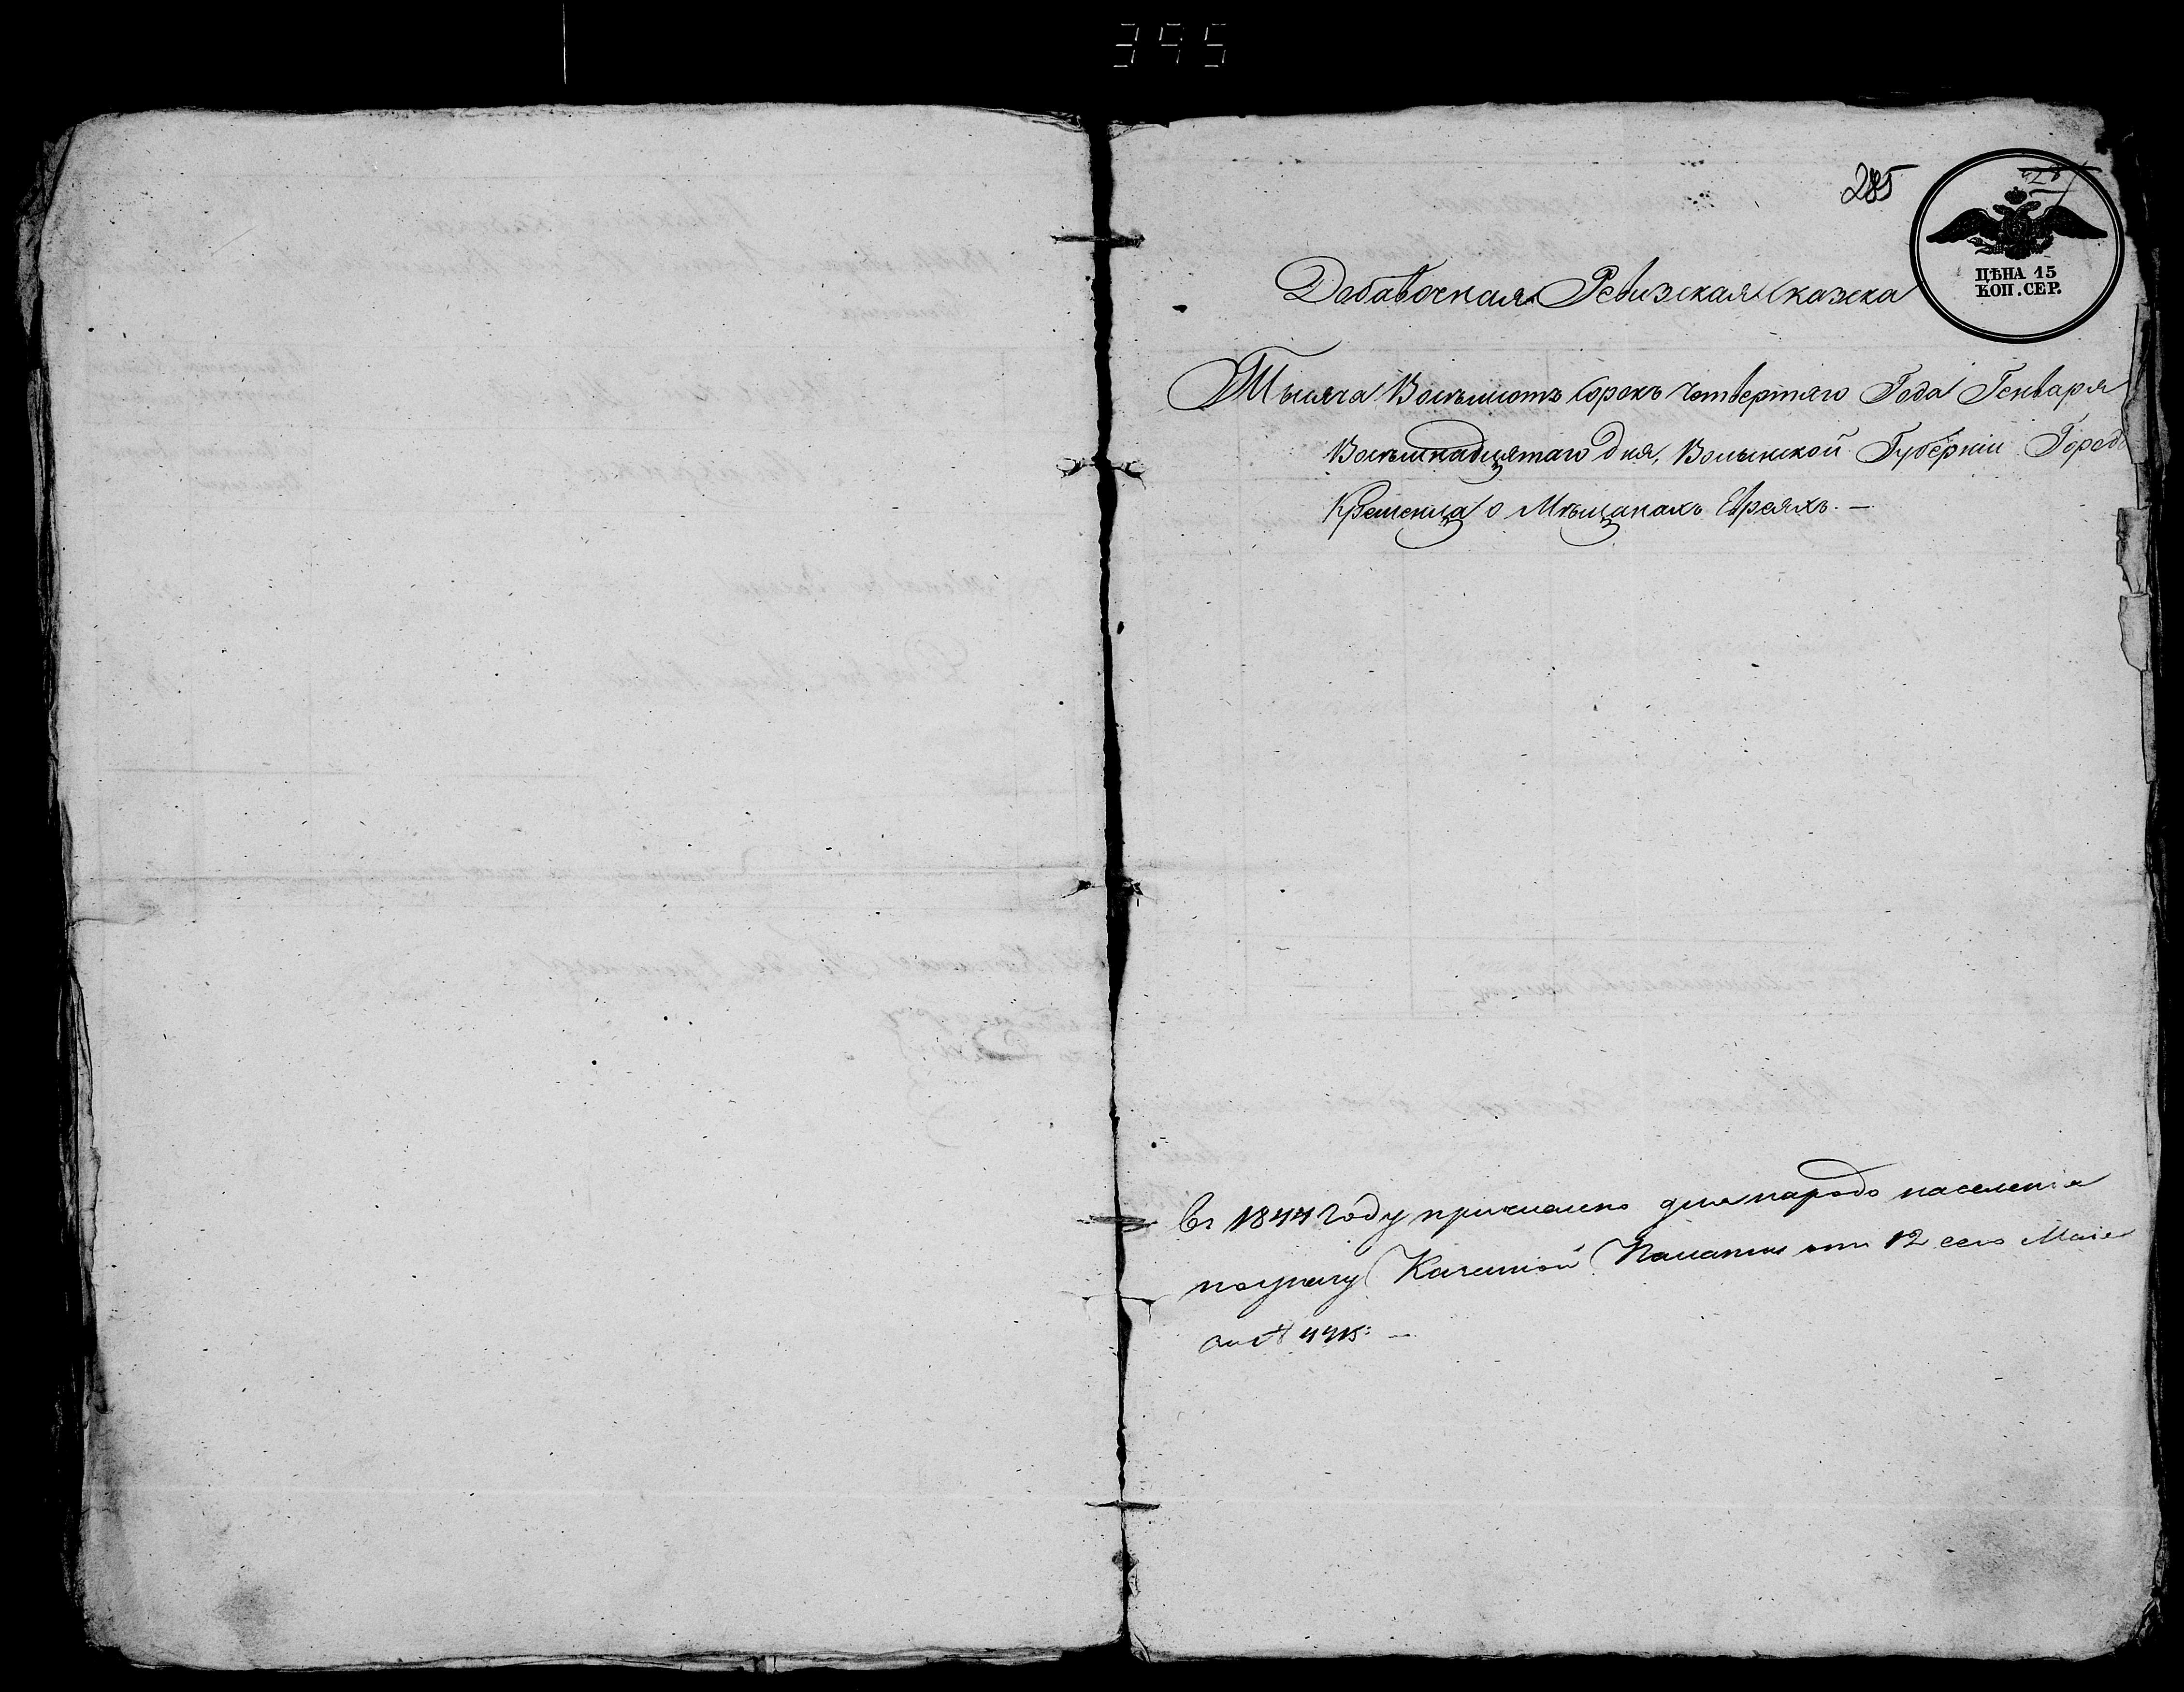 395
285
ЦѢНА 15
КОП. СЕР.
Добавочная Ревизская Сказка
Тысяча Восьмсотъ Сорокъ Четвертаго Года Генваря
Восьмнадцятаго Дня, Волынской Губерніи Города
Кременца о Мѣщанахъ Евреяхъ. —
въ 1844 году причислено для народо населенія
по указу Казенной Палаты отъ 12 сего Маія
за №